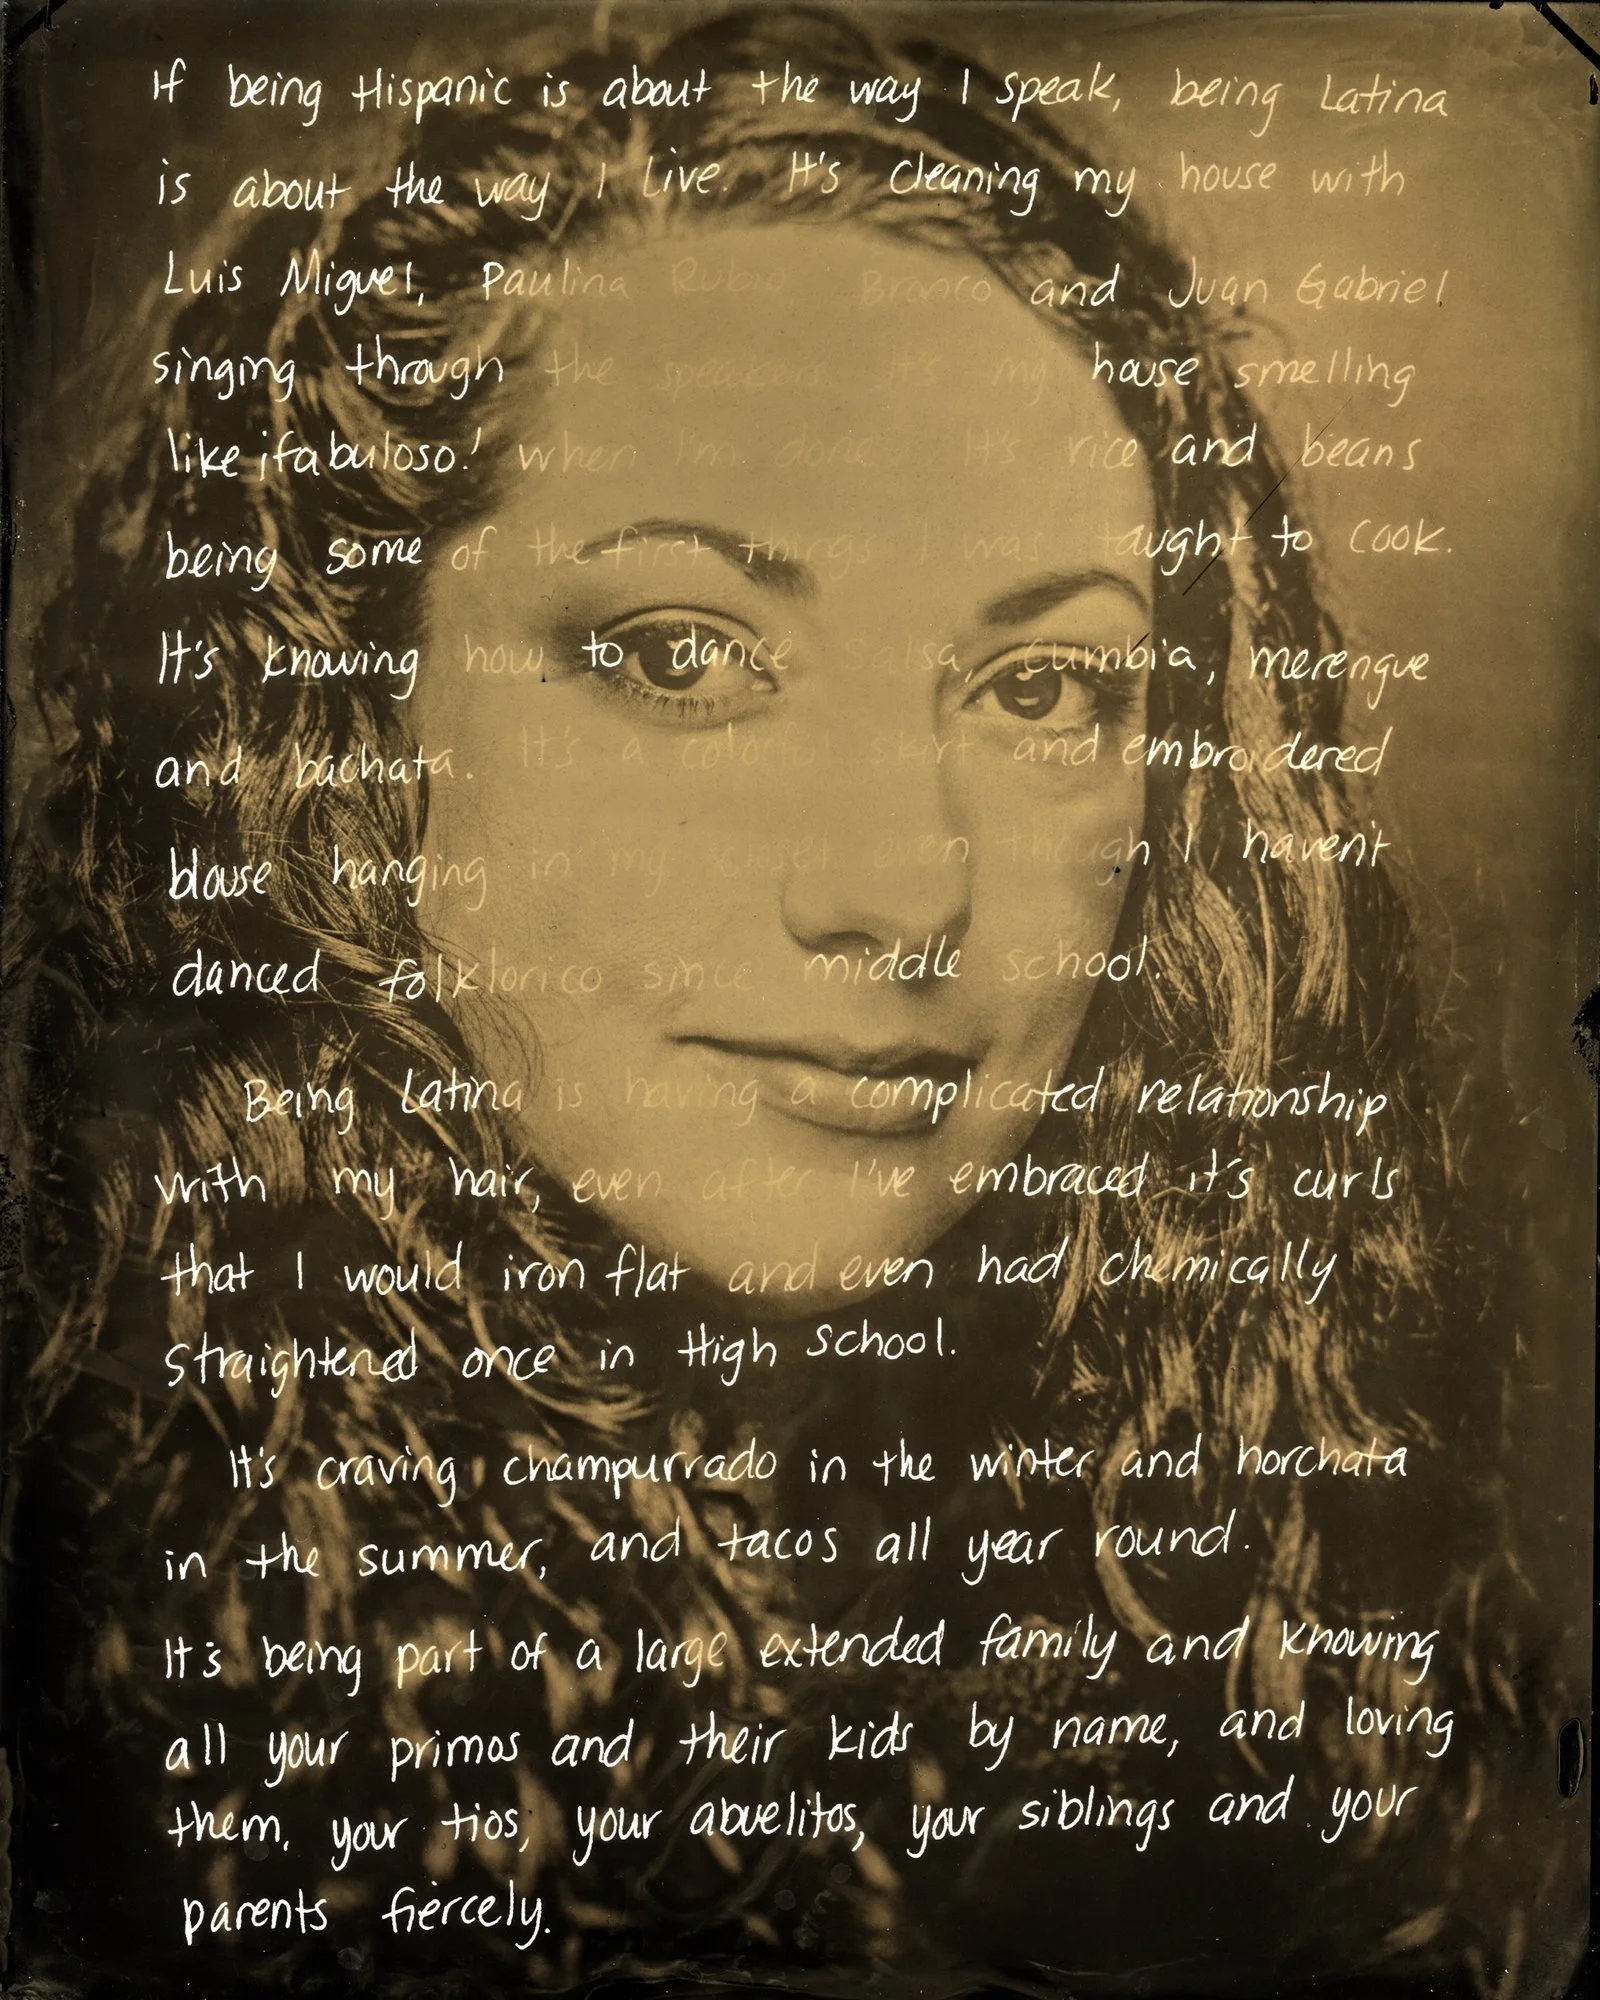 If being Hispanic is about the way I speak, being Latina
is about the way I live. It's cleaning my house with
Luis Miguel, Paulina Rubio Bronco and Juan Gabriel
singing through the speakers it's my house smelling
like ¡fabuloso! when I'm done It's rice and beans
being some of the first things I was taught to cook.
It's knowing how to dance salsa, cumbia, merengue
and bachata. It's a colorful skirt and embroidered
blouse hanging in my closet even though I haven't
danced folklorico since middle school.
Being Latina is having a complicated relationship
with my hair, even after I've embraced it's curls
that I would iron flat and even had chemically
straightened once in High School.
It's craving champurrado in the winter and horchata
in the summer, and tacos all year round.
It's being part of a large extended family and knowing
all your primos and their kids by name, and loving
them, your tios, your abuelitos, your siblings and your
parents fiercely.